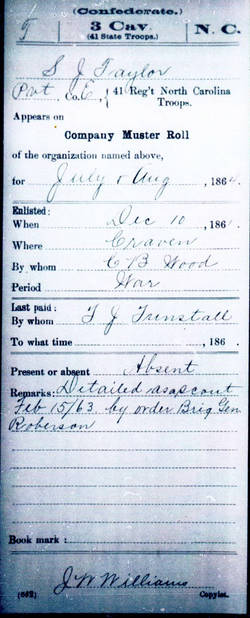 (Confederate.)
T 3 Cav. N. C.
(41 State Troops.)
S J Taylor
Pvt, Co. E, 41 Reg't North Carolina Troops.
Appears on
Company Muster Roll
of the organization named above,
for July & Aug, 1864.
Enlisted:
When Dec 10, 186
Where Craven
By whom C B Wood
Period War
Last paid:
By whom T J Tunstall
To what time, 186
Present or absent Absent
Remarks: Detailed as a scout
Feb 15/63 by order Brig Gen
Roberson
Book mark:
J W Williams
(652) Copyist.